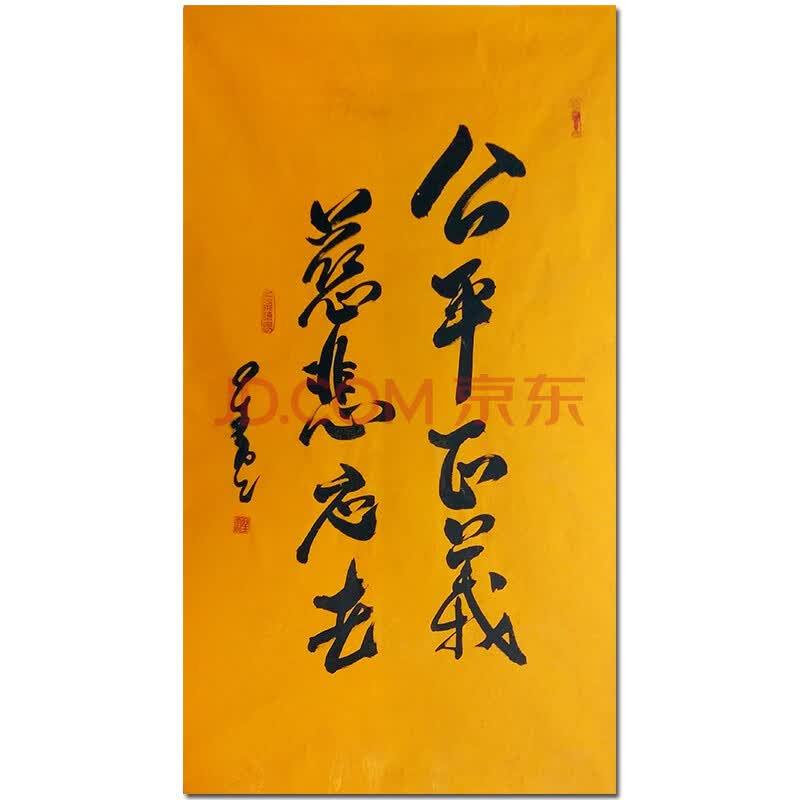 公平正義
慈悲应世
JD.COM 京东